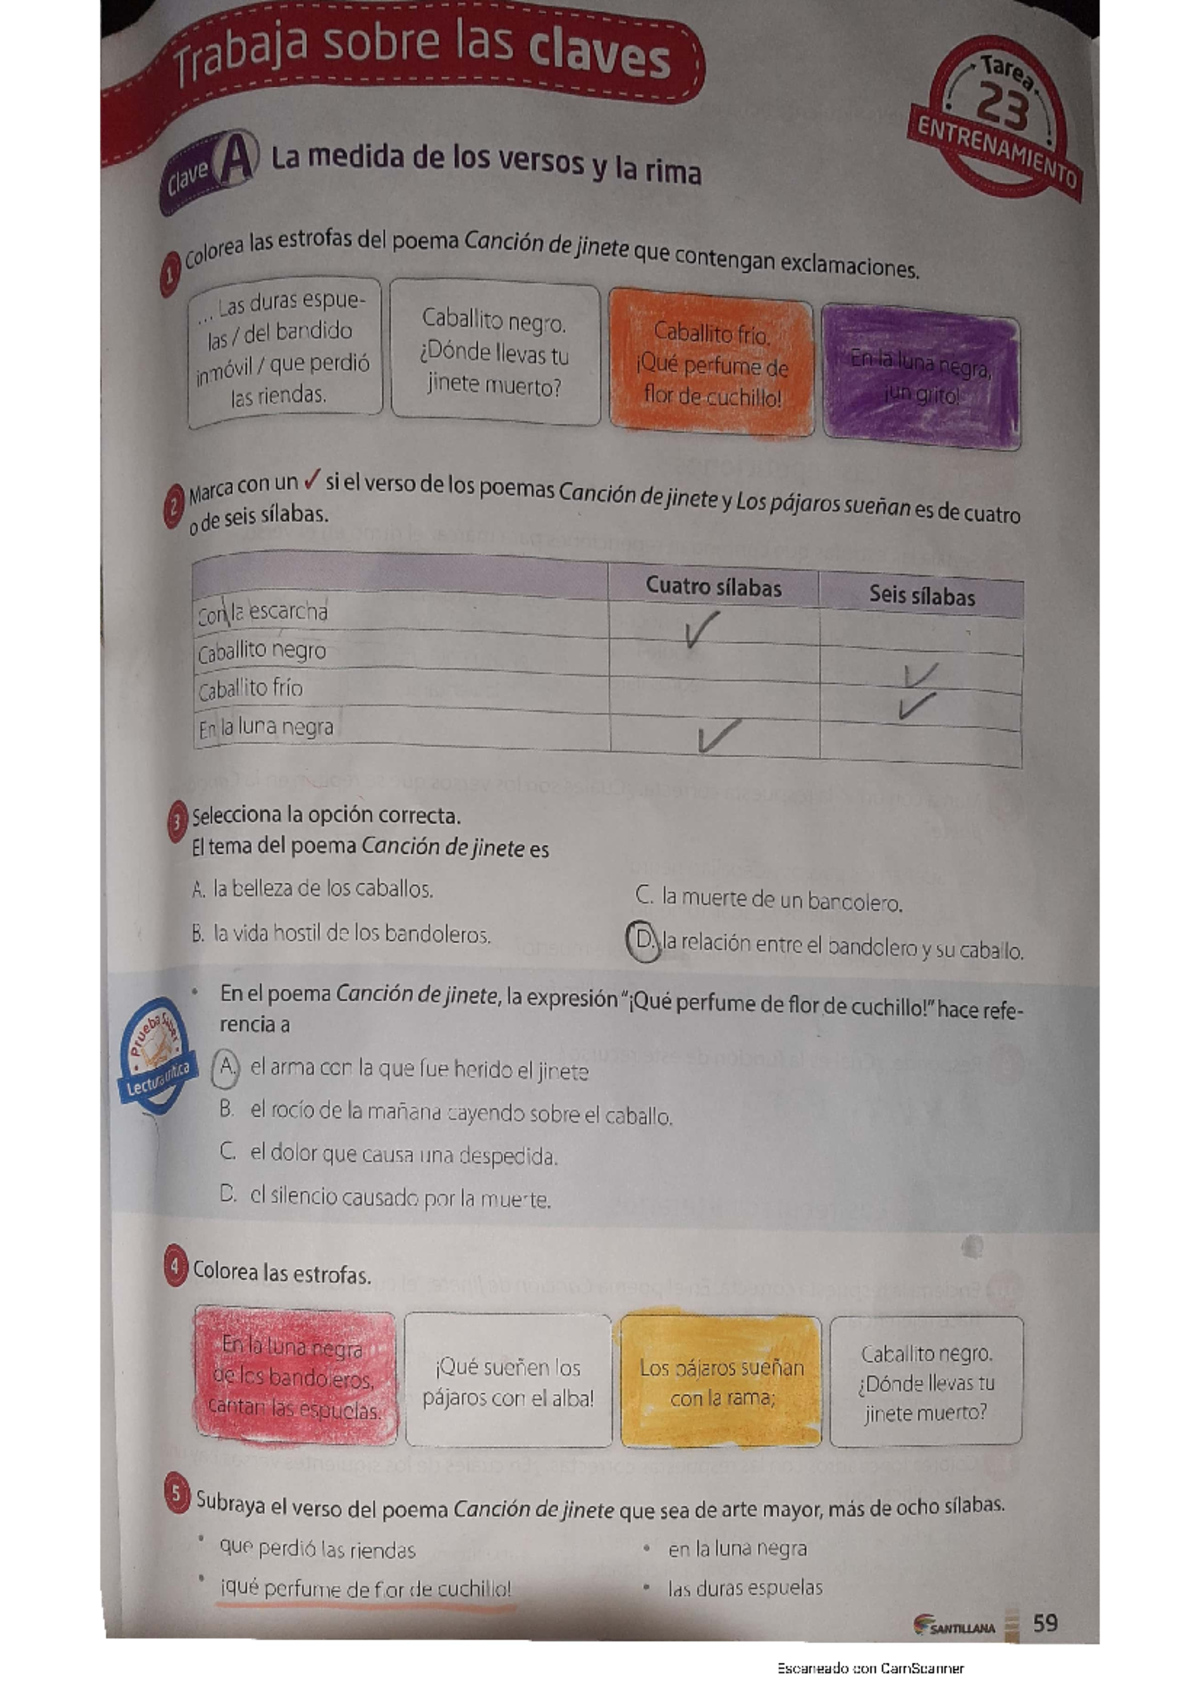 Trabaja sobre las claves
Tarea
23
ENTRENAMIENTO
Clave A La medida de los versos y la rima
1 Colorea las estrofas del poema Canción de jinete que contengan exclamaciones.
... Las duras espue-
las / del bandido
inmóvil / que perdió
las riendas.
Caballito negro.
¿Dónde llevas tu
jinete muerto?
Caballito frío.
¡Qué perfume de
flor de cuchillo!
En la luna negra,
¡un grito!
2 Marca con un ✓ si el verso de los poemas Canción de jinete y Los pájaros sueñan es de cuatro
o de seis sílabas.
Cuatro sílabas Seis sílabas
Con la escarcha ✓
Caballito negro ✓
Caballito frío ✓
En la luna negra ✓
3 Selecciona la opción correcta.
El tema del poema Canción de jinete es
A. la belleza de los caballos.
B. la vida hostil de los bandoleros.
C. la muerte de un bandolero.
D. la relación entre el bandolero y su caballo.
• En el poema Canción de jinete, la expresión “¡Qué perfume de flor de cuchillo!” hace refe-
rencia a
Prueba Saber
Lectura crítica
A. el arma con la que fue herido el jinete
B. el rocío de la mañana cayendo sobre el caballo.
C. el dolor que causa una despedida.
D. el silencio causado por la muerte.
4 Colorea las estrofas.
En la luna negra
de los bandoleros,
cantan las espuelas.
¡Qué sueñen los
pájaros con el alba!
Los pájaros sueñan
con la rama;
Caballito negro.
¿Dónde llevas tu
jinete muerto?
5 Subraya el verso del poema Canción de jinete que sea de arte mayor, más de ocho sílabas.
• que perdió las riendas
• ¡qué perfume de flor de cuchillo!
• en la luna negra
• las duras espuelas
SANTILLANA
59
Escaneado con CamScanner